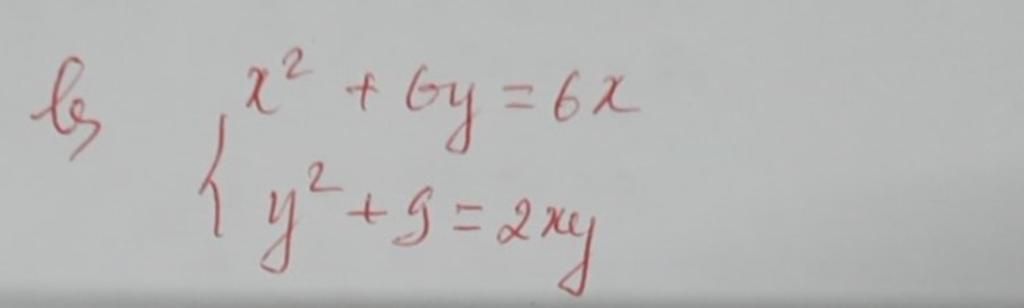 b, x² + 6y = 6x
{ y² + 9 = 2xy